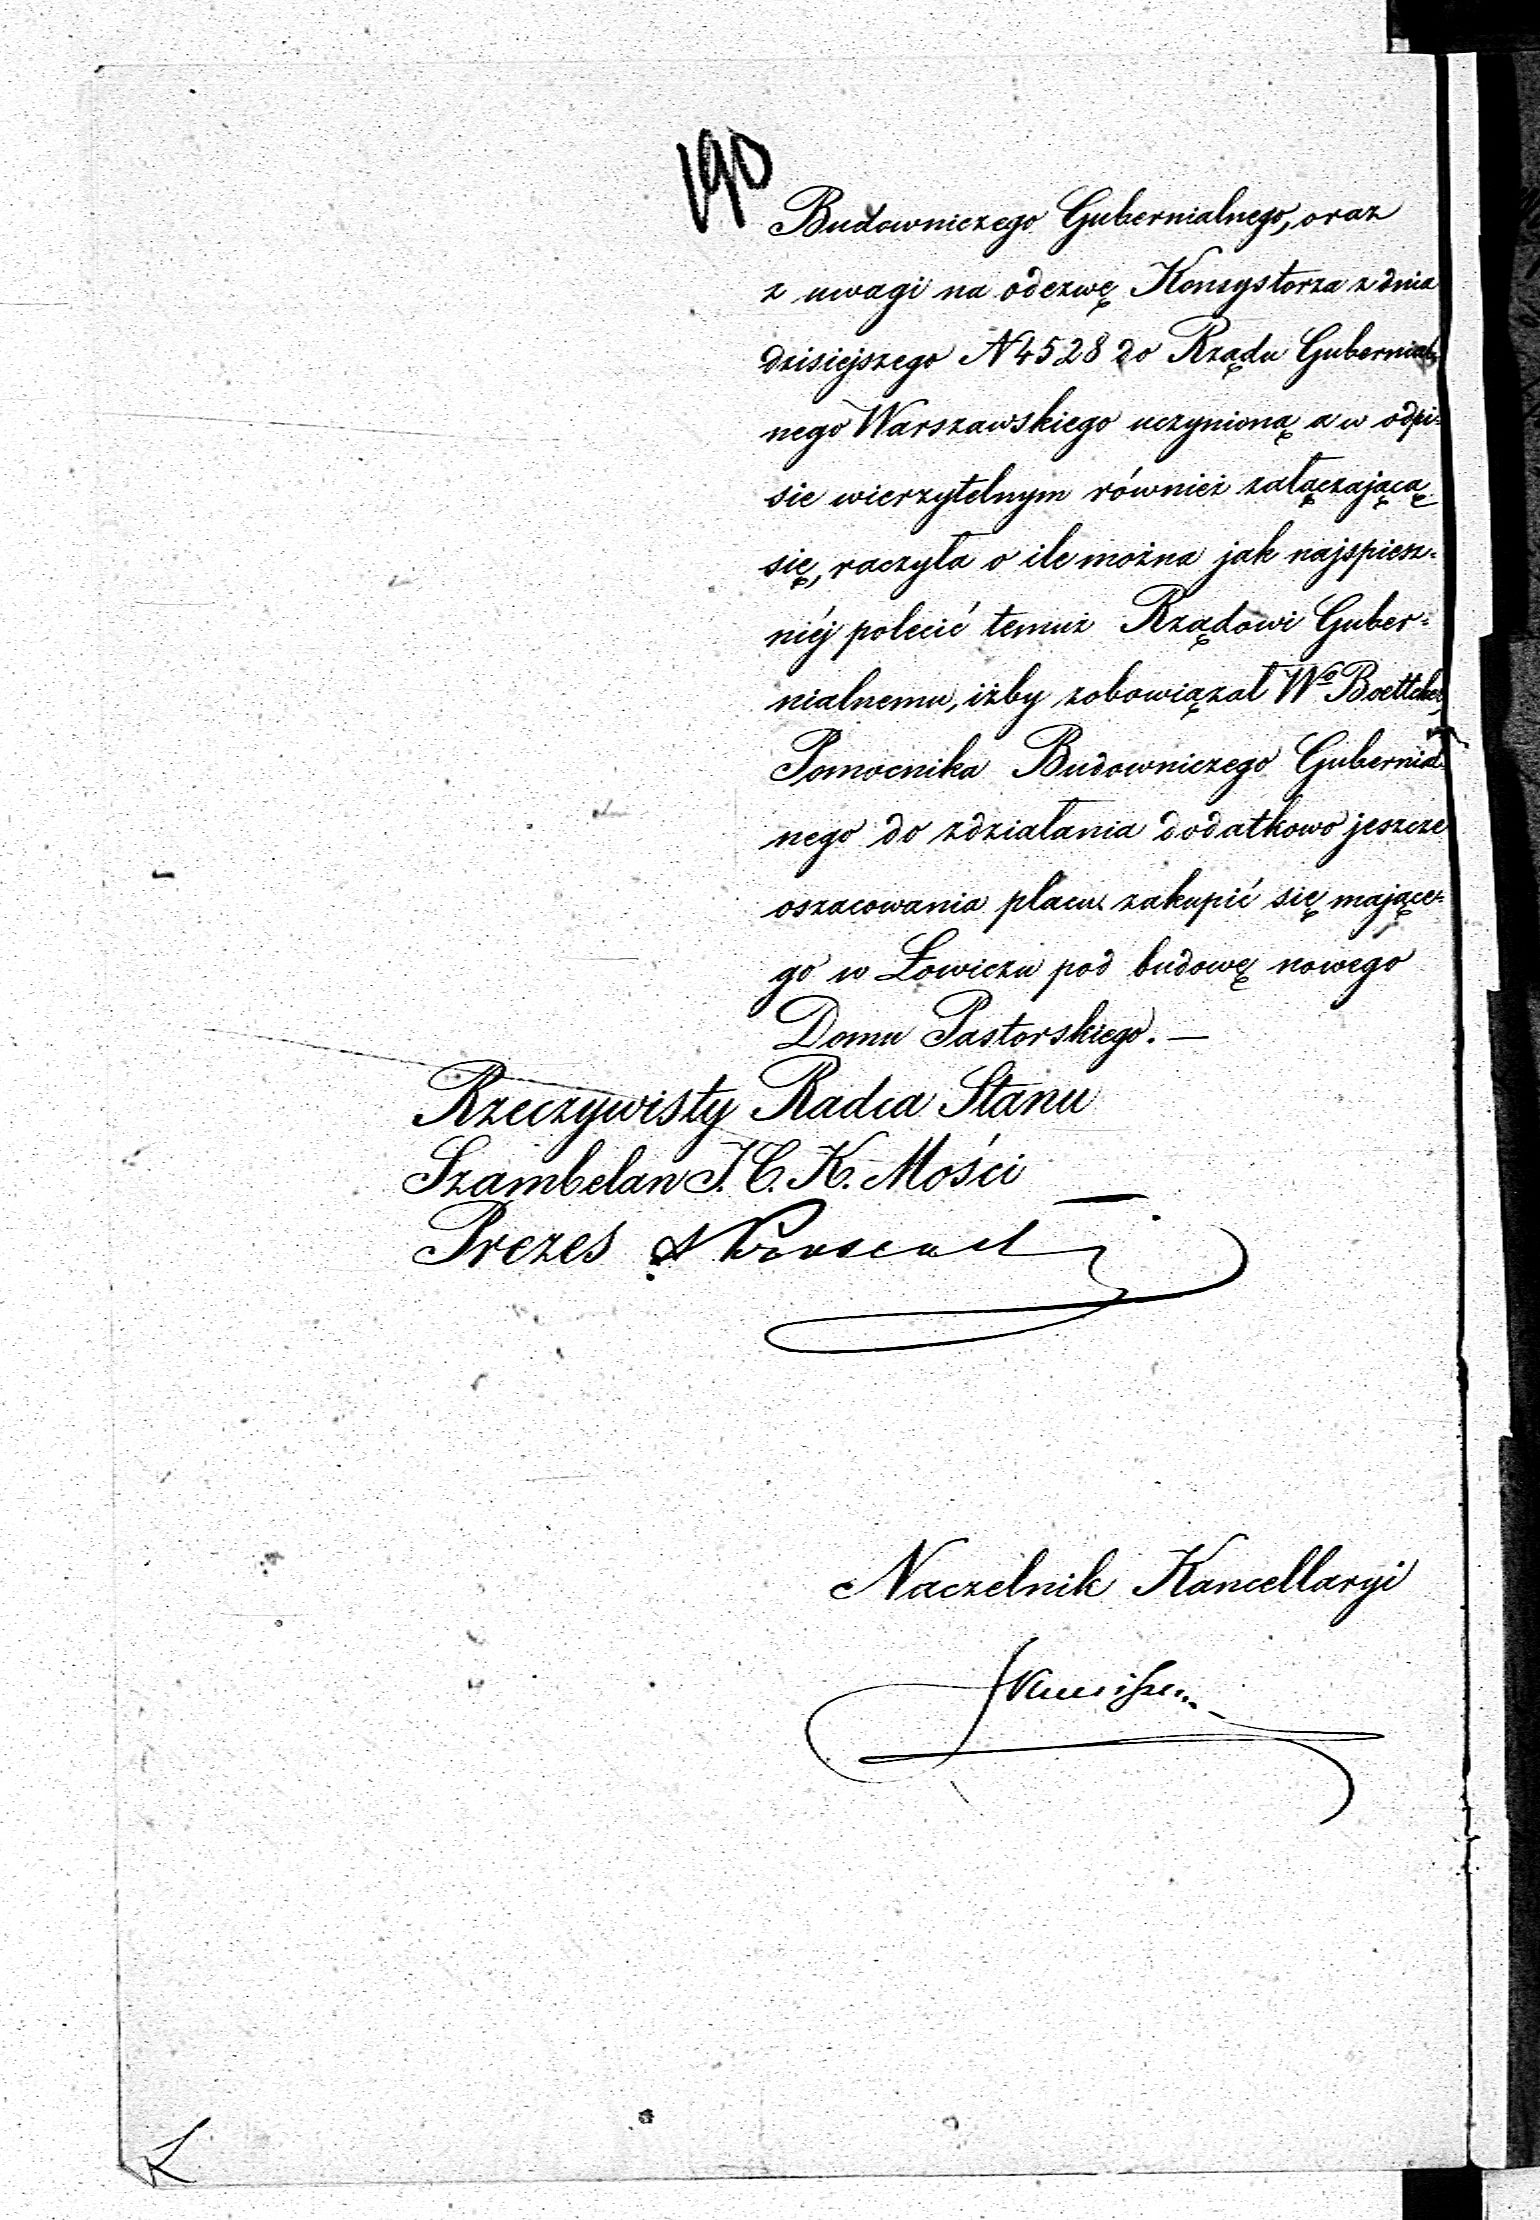 190
Budowniczego Gubernialnego, oraz
z uwagi na odezwę Konsystorza z dnia
dzisiejszego N 4528 do Rządu Gubernial-
nego Warszawskiego uczynioną a w odpi-
sie wierzytelnym również załączającą
się, raczyła o ile można jak najspiesz-
niéj polecić temuż Rządowi Guber-
nialnemu, iżby zobowiązał Wo Boettcher
Pomocnika Budowniczego Gubernial-
nego do zdziałania dodatkowo jeszcze
oszacowania placu zakupić się mające-
go w Łowiczu pod budowę nowego
Domu Pastorskiego. —
Rzeczywisty Radca Stanu
Szambelan J. C. K. Mości
Prezes
Naczelnik Kancellaryi